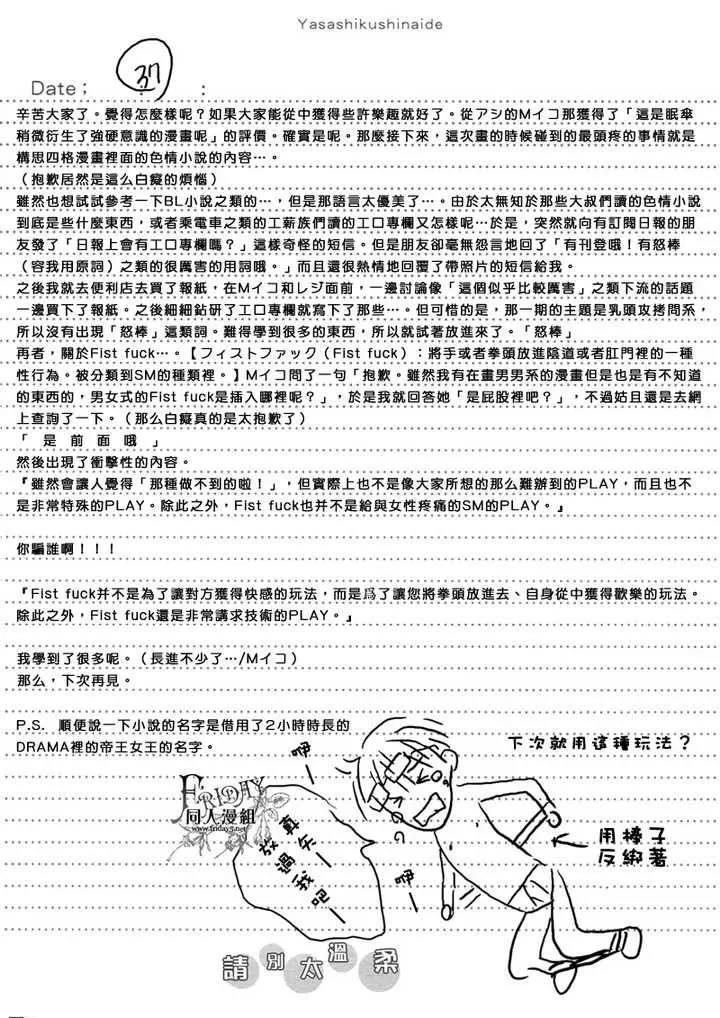 Yasashikushinaide
Date；
37
：
辛苦大家了。覺得怎麼樣呢？如果大家能從中獲得些許樂趣就好了。從アシのMイコ那獲得了「這是眠傘
稍微衍生了強硬意識的漫畫呢」的評價。確實是呢。那麼接下來，這次畫的時候碰到的最頭疼的事情就是
構思四格漫畫裡面的色情小說的內容…。
（抱歉居然是這么白癡的煩惱）
雖然也想試試參考一下BL小說之類的…，但是那語言太優美了…。由於太無知於那些大叔們讀的色情小說
到底是些什麼東西，或者乘電車之類的工薪族們讀的工口專欄又怎樣呢…於是，突然就向有訂閱日報的朋
友發了「日報上會有工口專欄嗎？」這樣奇怪的短信。但是朋友卻毫無怨言地回了「有刊登哦！有怒棒
（容我用原詞）之類的很厲害的用詞哦。」而且還很熱情地回覆了帶照片的短信給我。
之後我就去便利店去買了報紙，在Mイコ和レジ面前，一邊討論像「這個似乎比較厲害」之類下流的話題
一邊買下了報紙。之後細細鉆研了工口專欄就寫下了那些…。但可惜的是，那一期的主題是乳頭攻拷問系，
所以沒有出現「怒棒」這類詞。難得學到很多的東西，所以就試著放進來了。「怒棒」
再者，關於Fist fuck…。【フィストファック（Fist fuck）：將手或者拳頭放進陰道或者肛門裡的一種
性行為。被分類到SM的種類裡。】Mイコ問了一句「抱歉。雖然我有在畫男男系的漫畫但是也是有不知道
的東西的，男女式的Fist fuck是插入哪裡呢？」，於是我就回答她「是屁股裡吧？」，不過姑且還是去網
上查詢了一下。（那么白癡真的是太抱歉了）
「 是 前 面 哦 」
然後出現了衝擊性的內容。
『雖然會讓人覺得「那種做不到的啦！」，但實際上也不是像大家所想的那么難辦到的PLAY，而且也不
是非常特殊的PLAY。除此之外，Fist fuck也并不是給與女性疼痛的SM的PLAY。』
你騙誰啊！！！
『Fist fuck并不是為了讓對方獲得快感的玩法，而是爲了讓您將拳頭放進去、自身從中獲得歡樂的玩法。
除此之外，Fist fuck還是非常講求技術的PLAY。』
我學到了很多呢。（長進不少了…/Mイコ）
那么，下次再見。
P.S. 順便說一下小說的名字是借用了2小時時長的
DRAMA裡的帝王女王的名字。
下次就用這種玩法？
用棒子
反綁著
咿—
真矢—
放過我吧—
咿—
FRIDAY
同人漫組
www.friday5.net
請別太溫柔